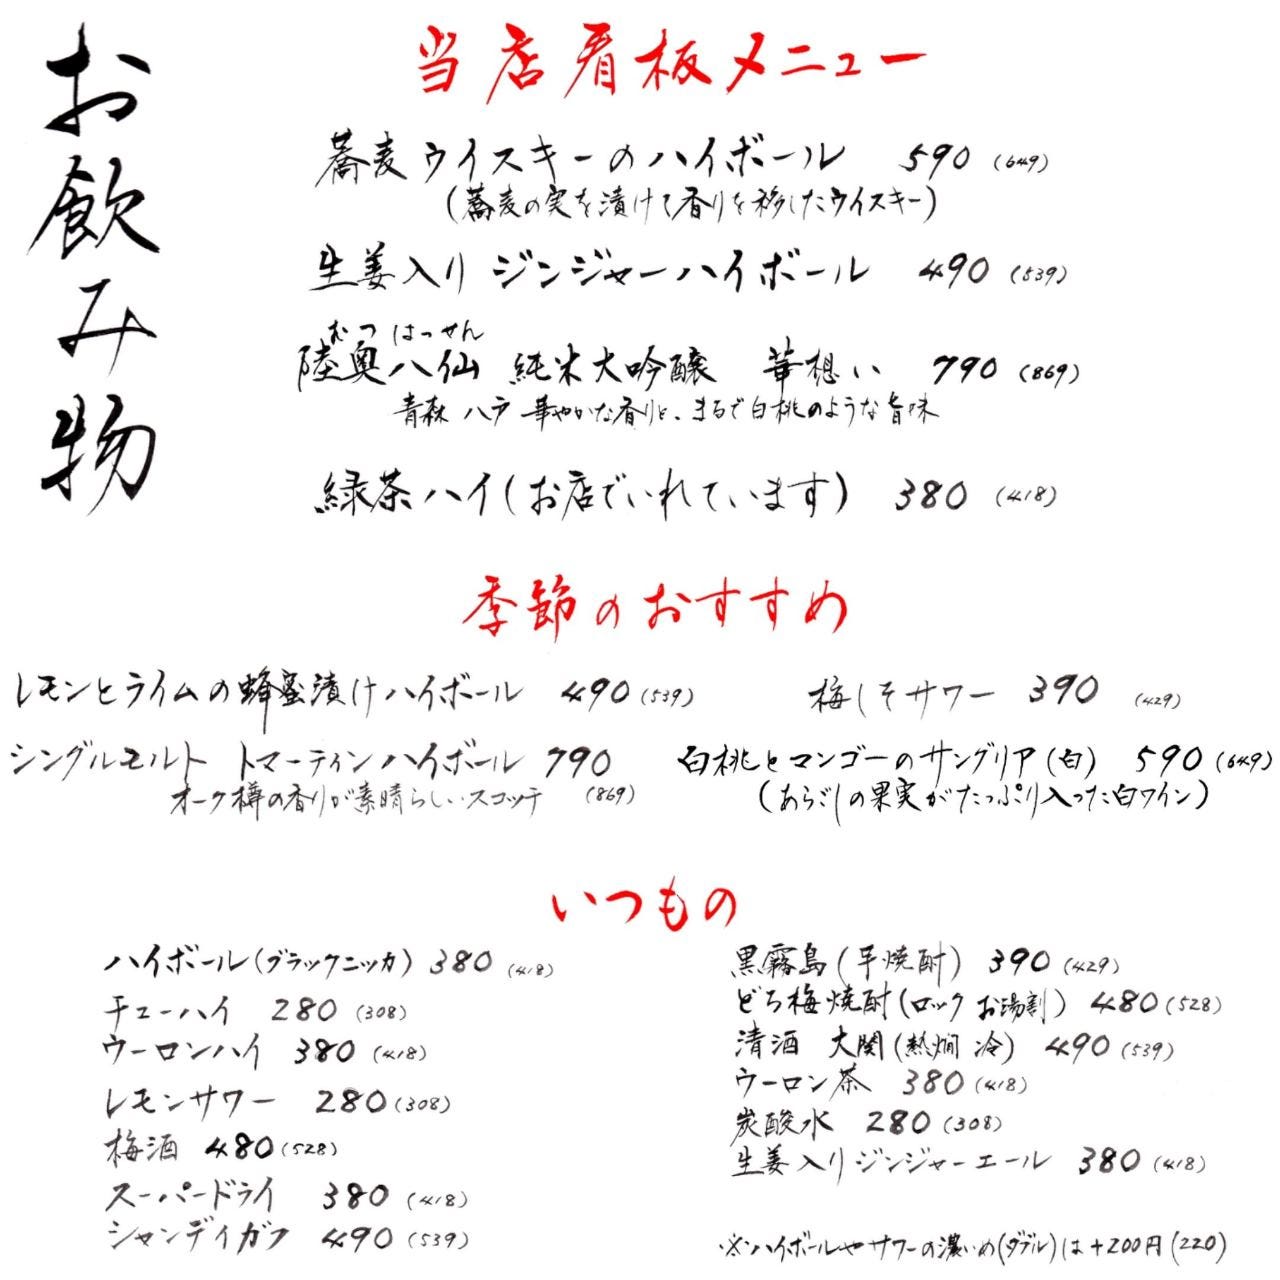 お飲み物
当店看板メニュー
蕎麦ウイスキーのハイボール 590 (649)
(蕎麦の実を漬けて香りを移したウイスキー)
生姜入り ジンジャーハイボール 490 (539)
むつ はっせん
陸奥八仙 純米大吟醸 華想い 790 (869)
青森 八戸 華やかな香りと、まるで白桃のような旨味
緑茶ハイ(お店でいれています) 380 (418)
季節のおすすめ
レモンとライムの蜂蜜漬けハイボール 490 (539)
シングルモルト トマーティンハイボール 790
オーク樽の香りが素晴らしいスコッチ (869)
梅しそサワー 390 (429)
白桃とマンゴーのサングリア(白) 590 (649)
(あらごしの果実がたっぷり入った白ワイン)
いつもの
ハイボール(ブラックニッカ) 380 (418)
チューハイ 280 (308)
ウーロンハイ 380 (418)
レモンサワー 280 (308)
梅酒 480 (528)
スーパードライ 380 (418)
シャンディガフ 490 (539)
黒霧島(芋焼酎) 390 (429)
どろ梅焼酎(ロック お湯割) 480 (528)
清酒 大関(熱燗 冷) 490 (539)
ウーロン茶 380 (418)
炭酸水 280 (308)
生姜入りジンジャーエール 380 (418)
※ハイボールやサワーの濃いめ(ダブル)は+200円(220)